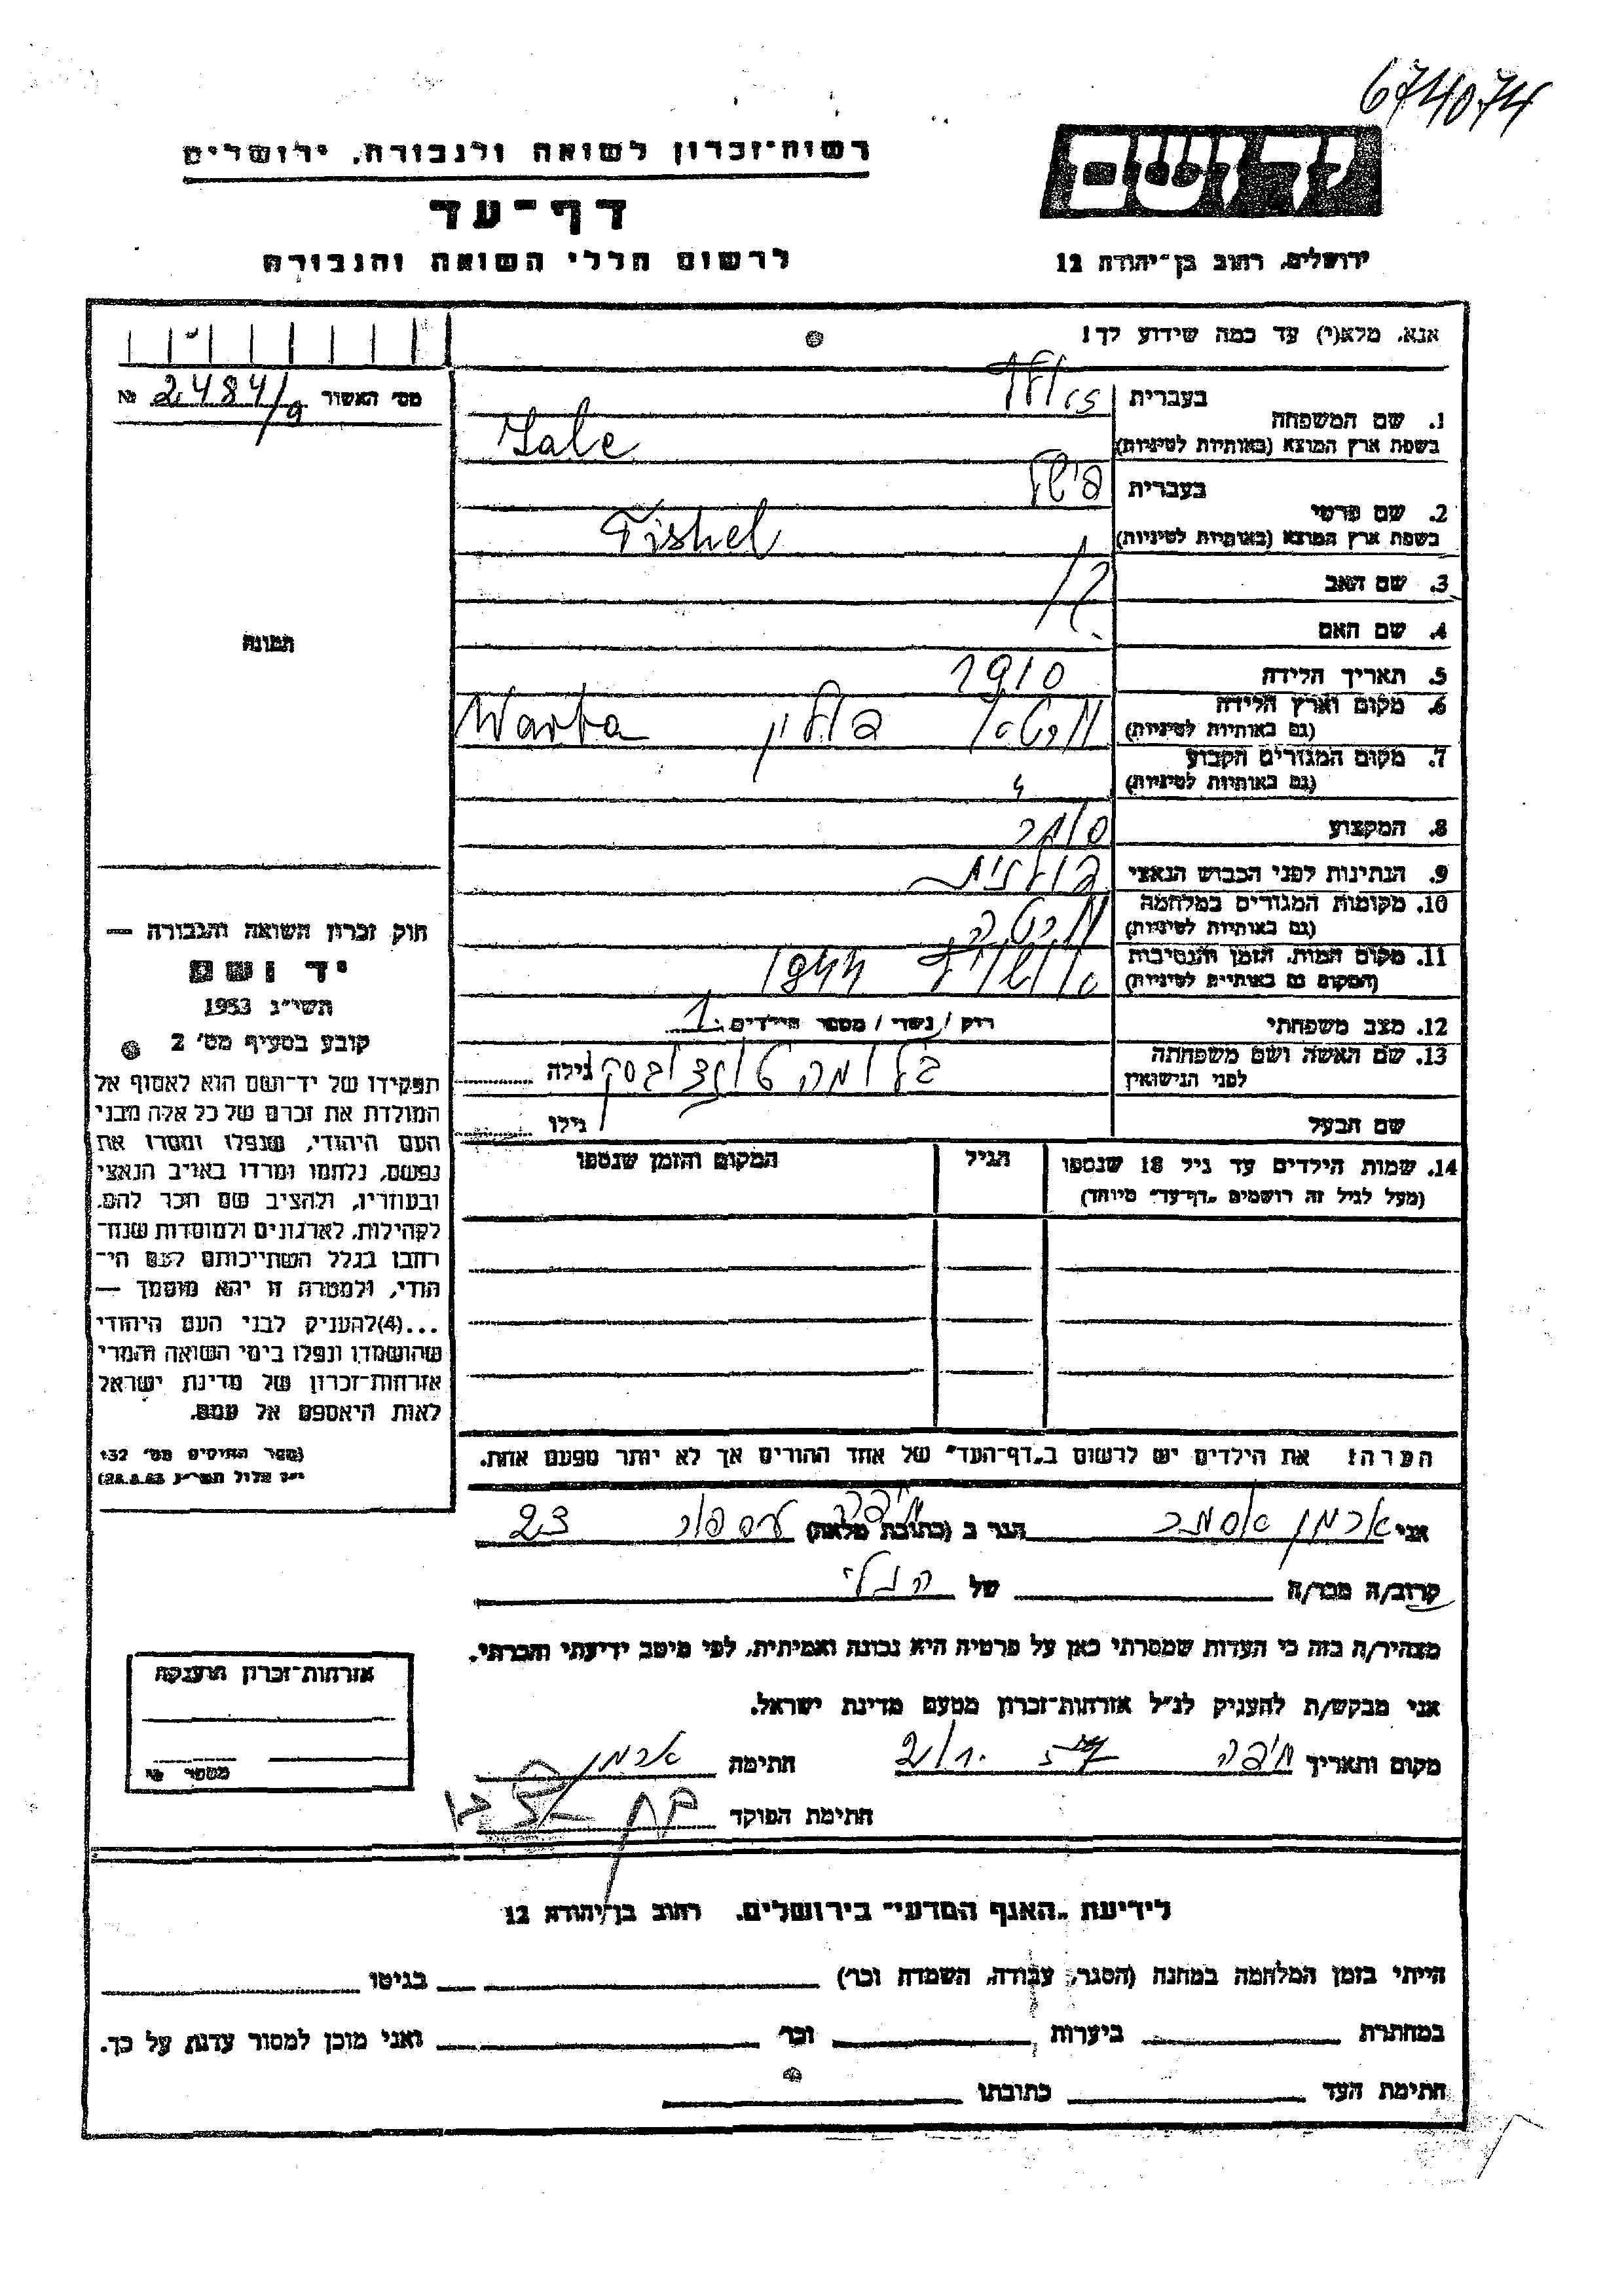 674074
יד ושם
רשות-זכרון לשואה ולגבורה, ירושלים
דף-עד
לרשום חללי השואה והגבורה
ירושלים, רחוב בן-יהודה 12
אנא, מלא(י) עד כמה שידוע לך!
מס' האשור 2484/9 №
בעברית
1. שם המשפחה
בשפת ארץ המוצא (באותיות לטיניות) Zale
בעברית פישל
2. שם פרטי
בשפת ארץ המוצא (באותיות לטיניות) Fishel
3. שם האב
4. שם האם
5. תאריך הלידה 1910
6. מקום וארץ הלידה ורטא פולין Warta
(גם באותיות לטיניות)
7. מקום המגורים הקבוע
(גם באותיות לטיניות)
8. המקצוע סוחר
9. הנתינות לפני הכבוש הנאצי פולנית
10. מקומות המגורים במלחמה ורטה
(גם באותיות לטיניות)
11. מקום המות, הזמן והנסיבות אושויץ 1944
(המקום גם באותיות לטיניות)
12. מצב משפחתי רוק / נשוי / מספר הילדים 1
13. שם האשה ושם משפחתה בלומה גילה
לפני הנישואין
שם הבעל גילו
14. שמות הילדים עד גיל 18 שנספו הגיל המקום והזמן שנספו
(מעל לגיל זה רושמים "דף-עד" מיוחד)
תמונה
חוק זכרון השואה והגבורה —
יד ושם
תשי"ג 1953
קובע בסעיף מס' 2
תפקידו של יד-ושם הוא לאסוף אל
המולדת את זכרם של כל אלה מבני
העם היהודי, שנפלו ומסרו את
נפשם, נלחמו ומרדו באויב הנאצי
ובעוזריו, ולהציב שם וזכר להם,
לקהילות, לארגונים ולמוסדות שנח-
רבו בגלל השתייכותם לעם הי-
הודי, ולמטרה זו יהא מוסמך —
...(4)להעניק לבני העם היהודי
שהושמדו ונפלו בימי השואה והמרי
אזרחות-זכרון של מדינת ישראל
לאות היאספם אל עמם.
(ספר החוקים מס' 132
י"ז אלול תשי"ג 28.8.53)
הערה! את הילדים יש לרשום ב"דף-העד" של אחד ההורים אך לא יותר מפעם אחת.
אני ארמן אסתר הגר ב (כתובת מלאה) חיפה 23
קרוב/ה מכר/ה של הנ"ל
מצהיר/ה בזה כי העדות שמסרתי כאן על פרטיה היא נכונה ואמיתית, לפי מיטב ידיעתי והכרתי.
אני מבקש/ת להעניק לנ"ל אזרחות-זכרון מטעם מדינת ישראל.
מקום ותאריך חיפה חתימה ארמן
חתימת הפוקד
אזרחות-זכרון הוענקה
מספר №
לידיעת "האגף המדעי" בירושלים. רחוב בן-יהודה 12
הייתי בזמן המלחמה במחנה (הסגר, עבודה, השמדה וכו') בגיטו
במחתרת ביערות וכו' ואני מוכן למסור עדות על כך.
חתימת העד כתובתו